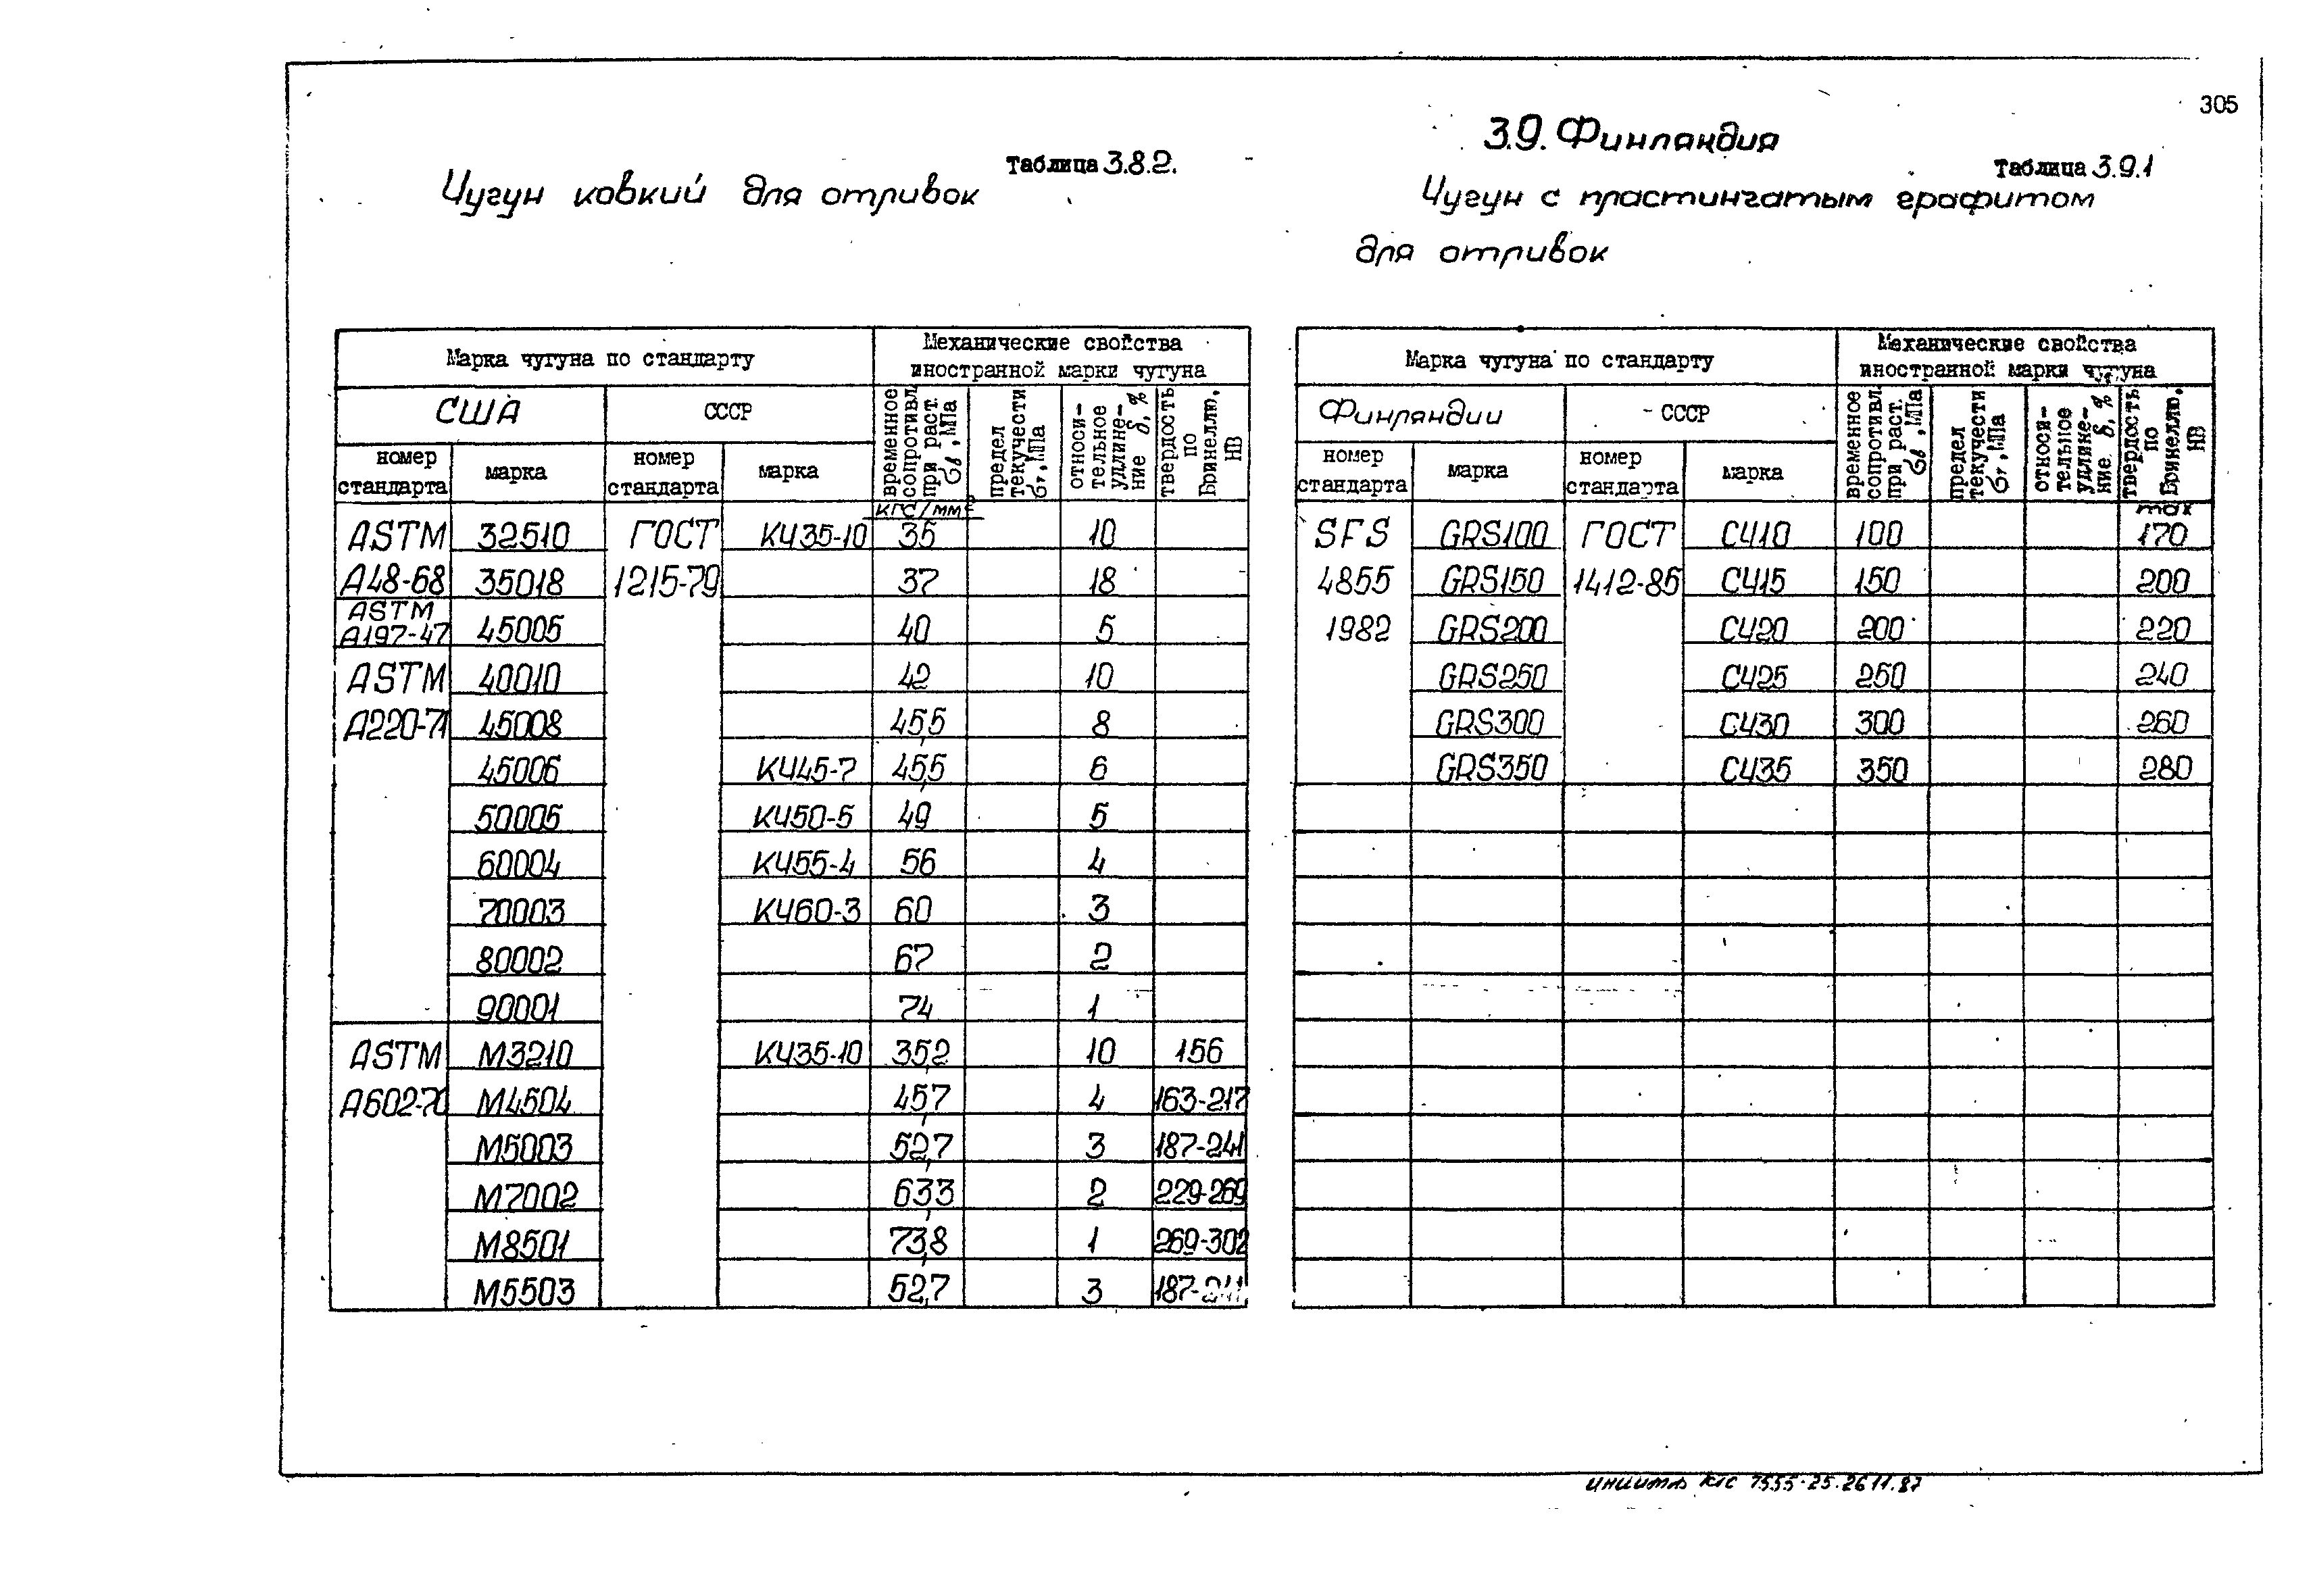 305
Таблица 3.8.2.
Чугун ковкий для отливок
Марка чугуна по стандарту
Механические свойства иностранной марки чугуна
США
СССР
номер стандарта
марка
номер стандарта
марка
временное сопротивл. при раст. σв, МПа
предел текучести σт, МПа
относительное удлинение δ, %
твердость по Бринеллю, НВ
кгс/мм²
ASTM 32510 ГОСТ КЧ35-10 35 10
А48-68 35018 1215-79 37 18
ASTM
А197-47 45005 40 5
ASTM 40010 42 10
А220-71 45008 45,5 8
45006 КЧ45-7 45,5 6
50005 КЧ50-5 49 5
60004 КЧ55-4 56 4
70003 КЧ60-3 60 3
80002 67 2
90001 74 1
ASTM М3210 КЧ35-10 35,2 10 156
А602-70 М4504 45,7 4 163-217
М5003 52,7 3 187-241
М7002 63,3 2 229-269
М8501 73,8 1 269-302
М5503 52,7 3 187-241
3.9. Финляндия
Таблица 3.9.1
Чугун с пластинчатым графитом
для отливок
Марка чугуна по стандарту
Механические свойства иностранной марки чугуна
Финляндии
СССР
номер стандарта
марка
номер стандарта
марка
временное сопротивл. при раст. σв, МПа
предел текучести σт, МПа
относительное удлинение δ, %
твердость по Бринеллю, НВ
max
SFS GRS100 ГОСТ СЧ10 100 170
4855 GRS150 1412-85 СЧ15 150 200
1982 GRS200 СЧ20 200 220
GRS250 СЧ25 250 240
GRS300 СЧ30 300 260
GRS350 СЧ35 350 280
7555-25.26.11.87